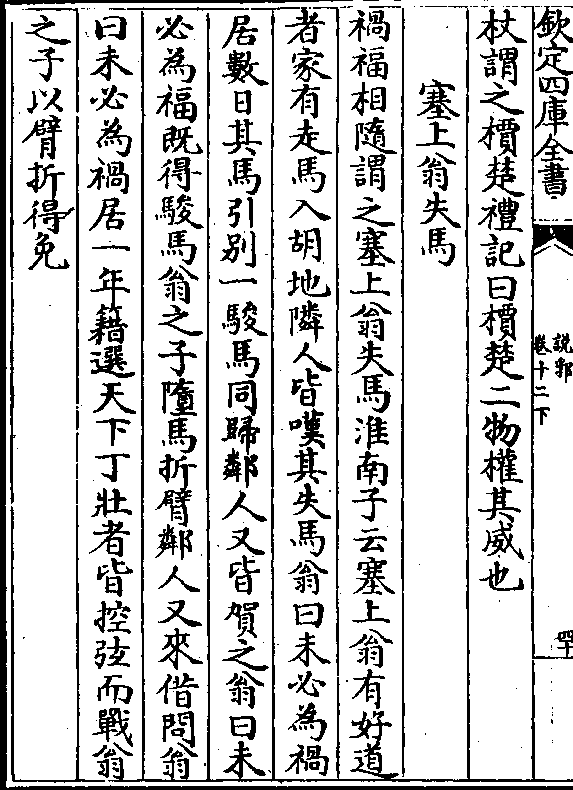 欽定四庫全書
說郛
卷十二下
四十
杖謂之檟楚禮記曰檟楚二物權其威也
塞上翁失馬
禍福相隨謂之塞上翁失馬淮南子云塞上翁有好道
者家有走馬入胡地隣人皆嘆其失馬翁曰未必為禍
居數日其馬引别一駿馬同歸鄰人又皆賀之翁曰未
必為福既得駿馬翁之子墮馬折臂鄰人又來借問翁
曰未必為禍居一年籍選天下丁壯者皆控弦而戰翁
之子以臂折得免